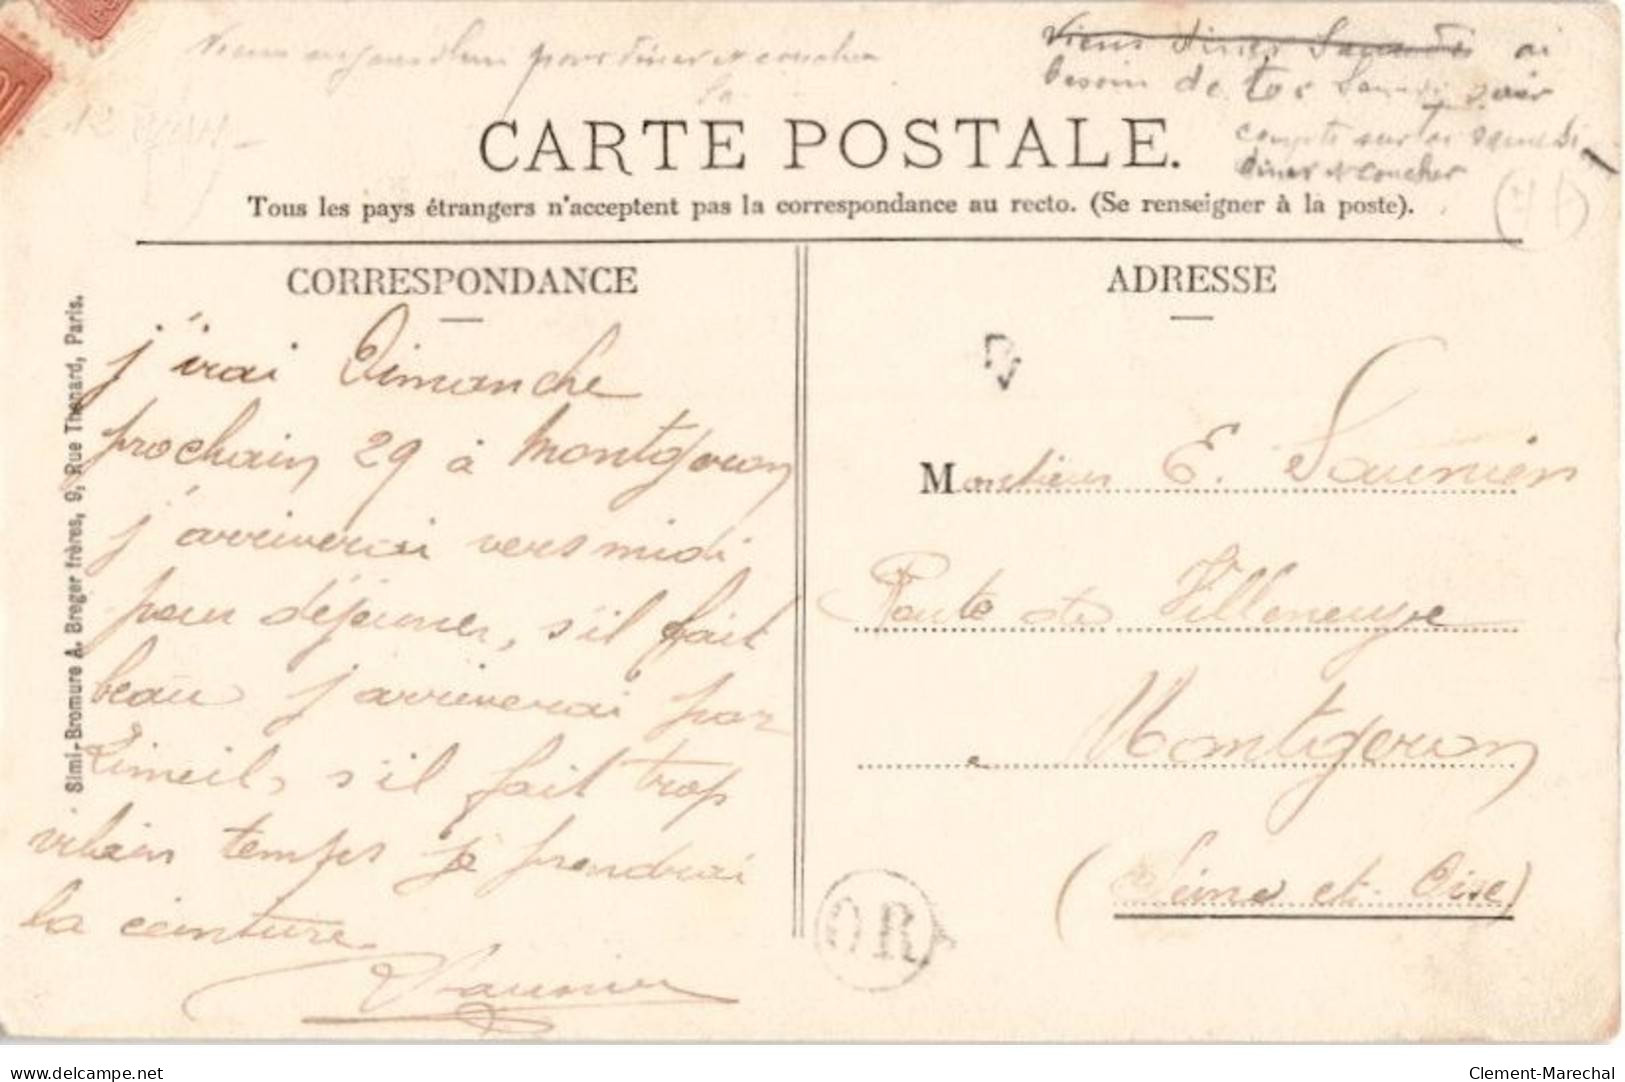 Viens aujourd'hui pour diner et coucher
Viens diner Samedi ai
besoin de toi Samedi soir
compte sur toi samedi
diner et coucher
CARTE POSTALE.
Tous les pays étrangers n'acceptent pas la correspondance au recto. (Se renseigner à la poste).
CORRESPONDANCE
j'irai Dimanche
prochain 29 à Montgeron
j'arriverai vers midi
pour déjeuner, s'il fait
beau j'arriverai par
Limeil, s'il fait trop
vilain temps je prendrai
la ceinture.
Saunier
Simi-Bromure A. Breger frères, 9, Rue Thenard, Paris.
ADRESSE
Monsieur E. Saunier
Route de Villeneuve
à Montgeron
(Seine et Oise)
OR
delcampe.net
Clement-Marechal